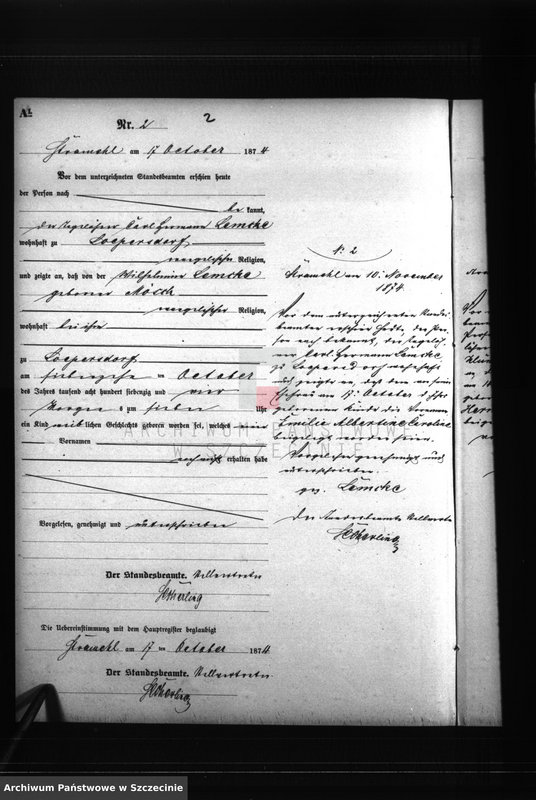 A¹.
Nr. 2
2
Stramehl am 17 October 1874
Vor dem unterzeichneten Standesbeamten erschien heute
der Person nach
be kannt,
der Tagelöhner Carl Hermann Lemcke
wohnhaft zu Loepersdorf
evangelischer Religion,
und zeigte an, daß von der Wilhelmine Lemcke
geborene
evangelischer Religion,
wohnhaft bei ihm
zu Loepersdorf
am siebenzehn ten October
des Jahres tausend acht hundert siebenzig und vier
Morgens um sieben Uhr
ein Kind weib lichen Geschlechts geboren worden sei, welches
Vornamen
noch nicht erhalten habe
Vorgelesen, genehmigt und unterschrieben
Der Standesbeamte. Stellvertreter
Die Uebereinstimmung mit dem Hauptregister beglaubigt
Stramehl am 17 ten October 1874
Der Standesbeamte. Stellvertreter
№ 2
Stramehl am 10. November
1874.
Vor dem unterzeichneten Standes
beamten erschien heute, der Per
son nach bekannt, der Tagelöh
ner Carl Hermann Lemcke
zu Loepersdorf wohnhaft
und zeigte an, daß dem
17. October d. Jahres
geborenen Kinde die Vornamen
Emilie Albertine Caroline
beigelegt worden seien.
Vorgelesen genehmigt und
unterschrieben
gez. Lemcke
Der Standesbeamte Stellvertreter
ARCHIWUM PAŃSTWOWE
W SZCZECINIE
Archiwum Państwowe w Szczecinie